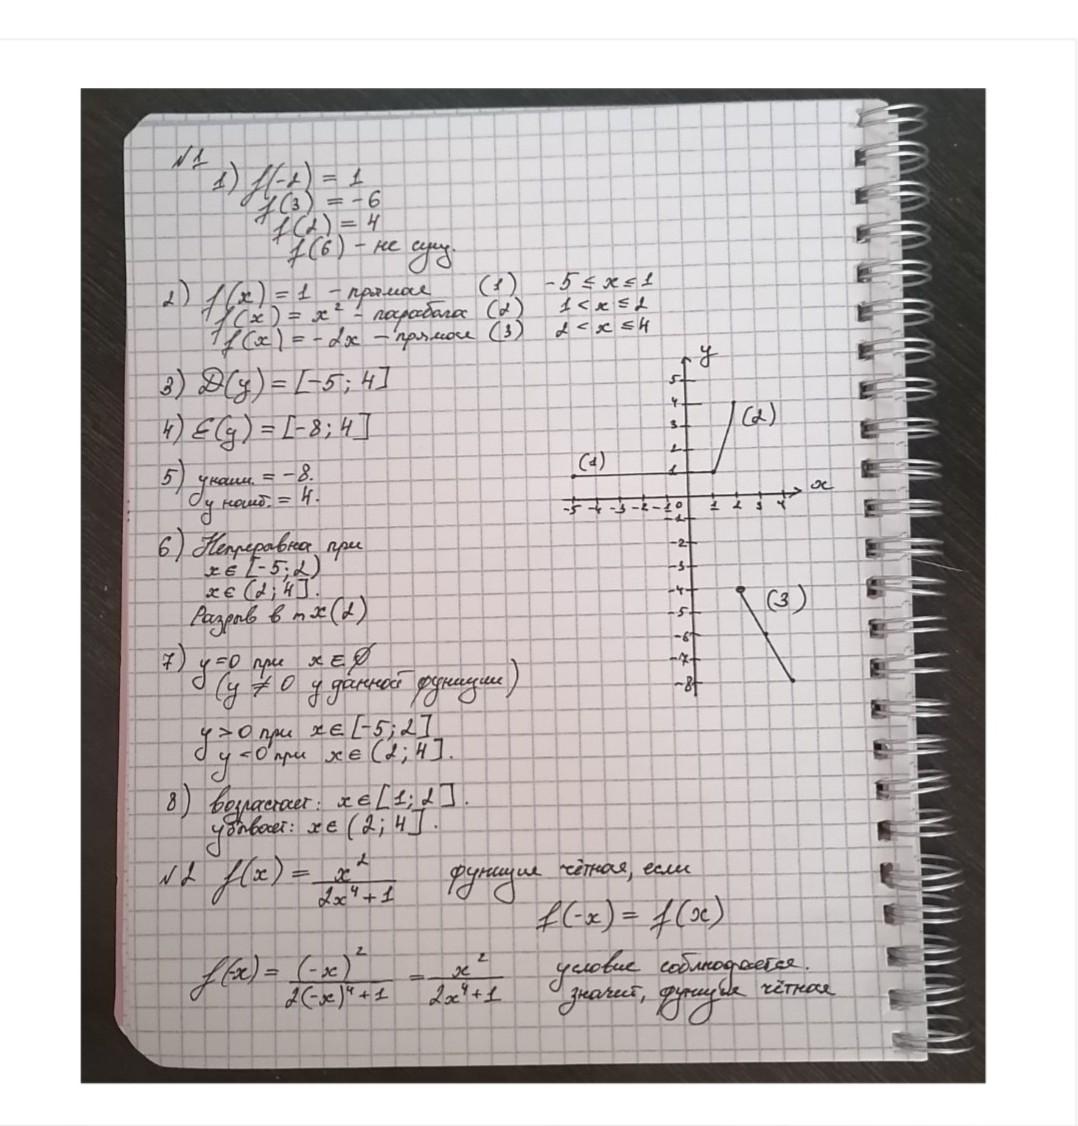 №1
1) f(-2) = 1
f(3) = -6
f(2) = 4
f(6) - не сущ.
2) f(x) = 1 - прямая (1) -5 ≤ x ≤ 1
f(x) = x² - парабола (2) 1 < x ≤ 2
f(x) = -2x - прямая (3) 2 < x ≤ 4
3) D(y) = [-5; 4]
4) E(y) = [-8; 4]
5) y наим. = -8.
y наиб. = 4.
6) Непрерывна при
x ∈ [-5; 2)
x ∈ (2; 4].
Разрыв в т x(2)
7) y=0 при x ∈ Ø
(y ≠ 0 у данной функции)
y > 0 при x ∈ [-5; 2]
y < 0 при x ∈ (2; 4].
8) возрастает: x ∈ [1; 2].
убывает: x ∈ (2; 4].
y
5
4
3
2
1
(1)
(2)
x
-5 -4 -3 -2 -1 0 1 2 3 4
-1
-2
-3
-4
-5
-6
-7
-8
(3)
№2 f(x) = x² / (2x⁴+1) функция чётная, если
f(-x) = f(x)
f(-x) = (-x)² / (2(-x)⁴+1) = x² / (2x⁴+1) условие соблюдается.
значит, функция чётная